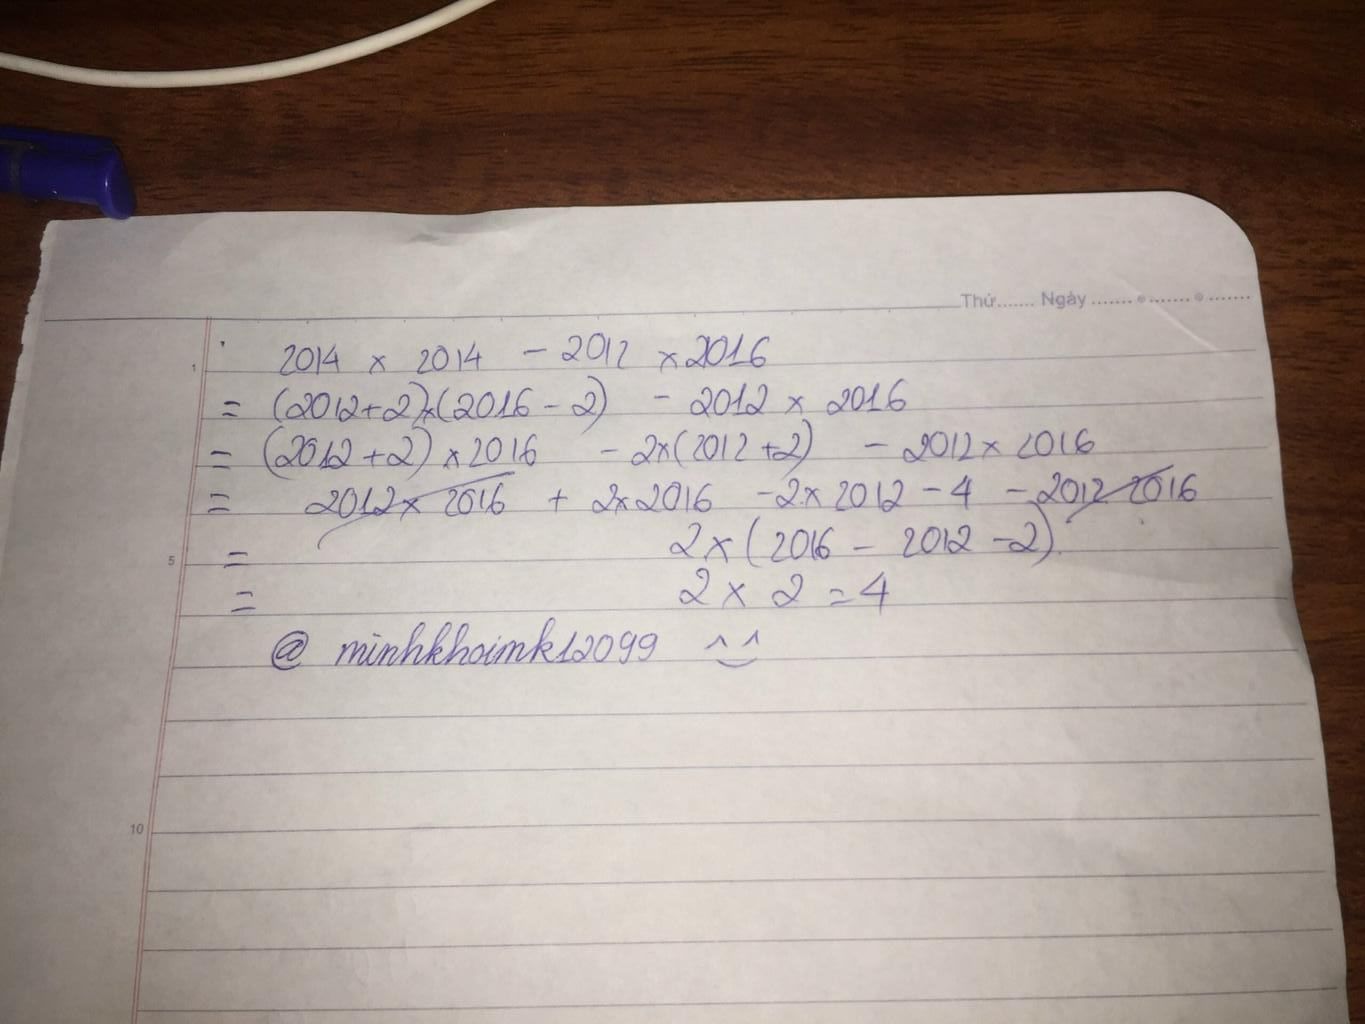 Thứ....... Ngày ....... ......... .......
1
2014 x 2014 - 2012 x 2016
= (2012+2)x(2016-2) - 2012 x 2016
= (2012+2) x 2016 - 2x(2012+2) - 2012 x 2016
= 2012 x 2016 + 2x2016 - 2x2012 - 4 - 2012 2016
5
= 2 x (2016 - 2012 - 2)
= 2 x 2 = 4
@ minhkhoimk12099 ^‿^
10